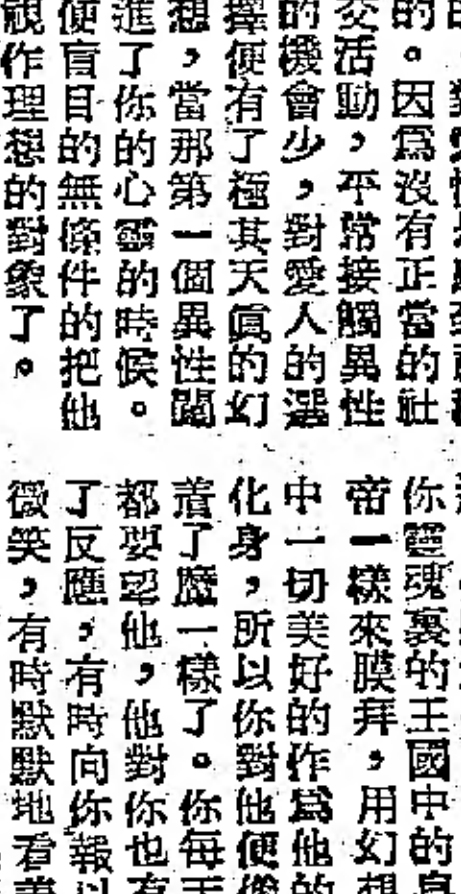 的。因爲沒有正當的社
交活動，平常接觸異性
的機會少，對愛人的選
擇便有了極其天眞的幻
想，當那第一個異性闖
進了你的心靈的時候。
便盲目的無條件的把他
視作理想的對象了。
你靈魂裏的王國中的皇
帝一樣來膜拜，用幻想
中一切美好的作爲他的
化身，所以你對他便像
着了魔一樣了。你每天
都要望他，他對你也有
了反應，有時向你報以
微笑，有時默默地看着